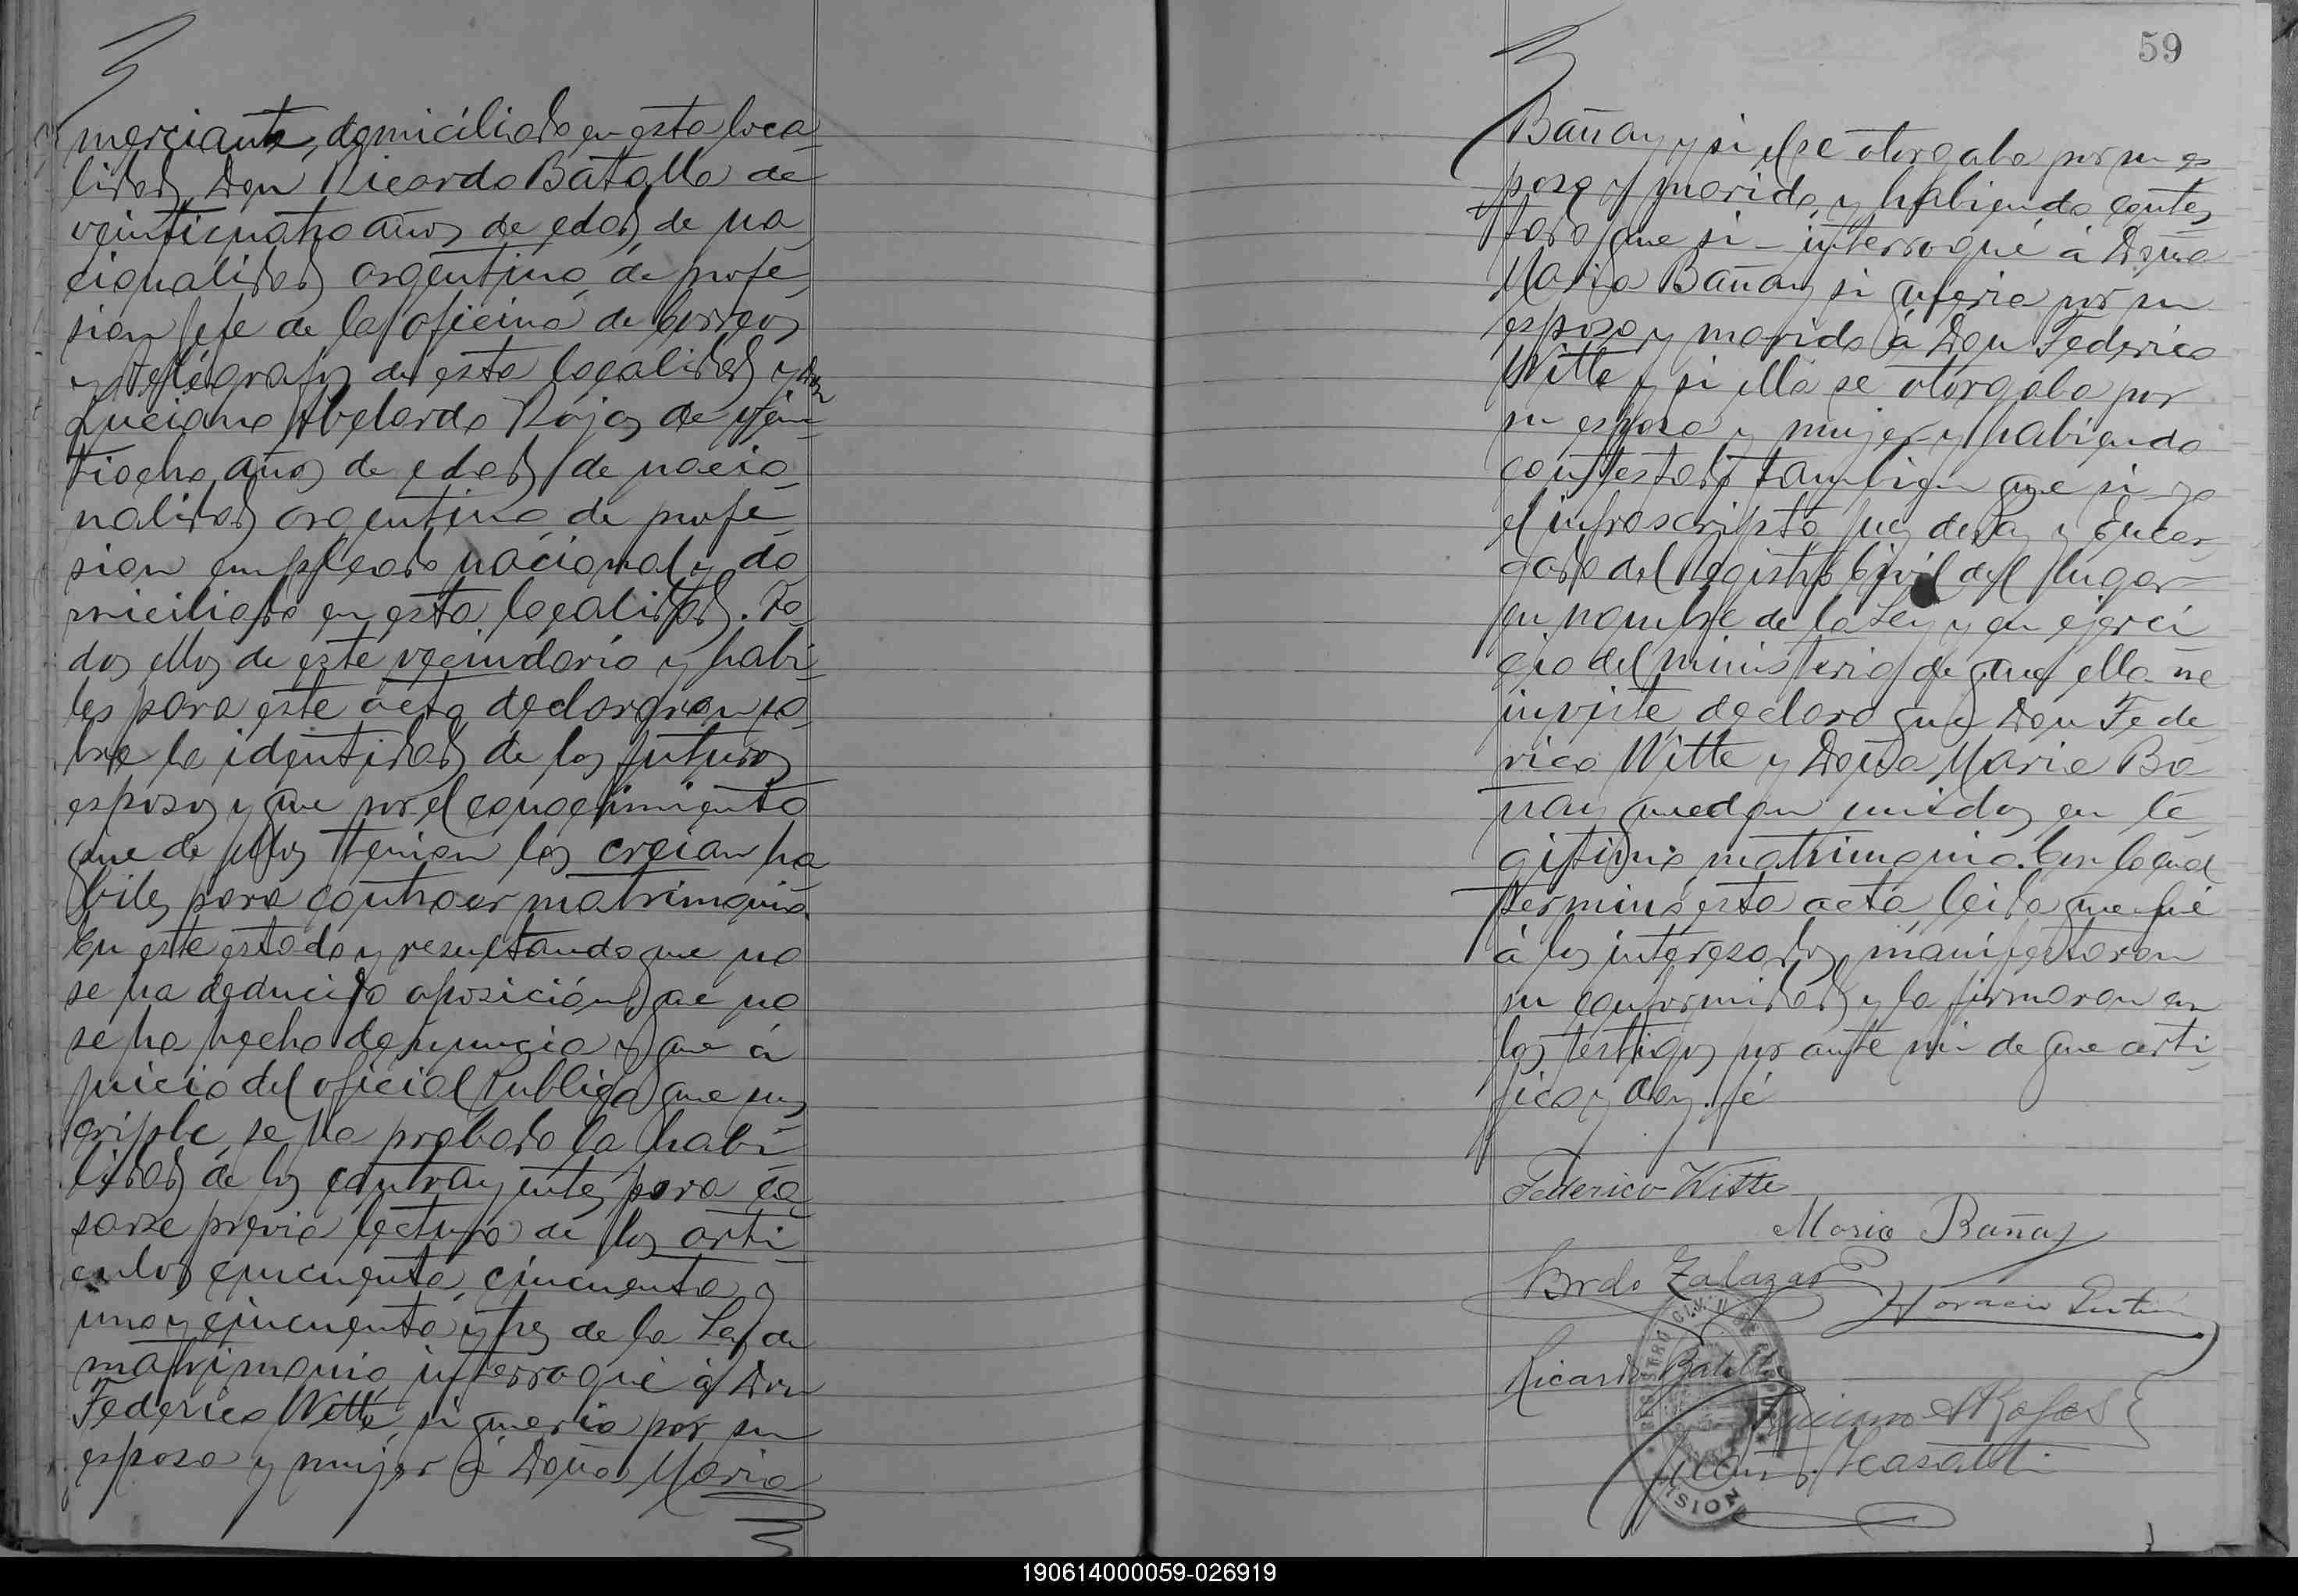 merciante, domiciliado en esta loca
lidad, Don Ricardo Batalla de
veinticuatro años de edad, de na
cionalidad argentina, de profe
sion jefe de la oficina de Correos
y telégrafos de esta localidad y Don
Luciano Abelardo Rojas de vein
tiocho años de edad, de nacio
nalidad argentina, de profe
sion empleado nacional y do
miciliado en esta localidad. To
dos ellos de este vecindario y habi
les para este acto, declararon so
bre la identidad de los futuros
esposos y que por el conocimiento
que de ellos tenian los creian ha
biles para contraer matrimonio.
En este estado y resultando que no
se ha deducido oposición, que no
se ha hecho denuncia y que á
juicio del oficial Publico que sus
cribe, se ha probado la habi
lidad de los contrayentes para ca
sarse previa lectura de los arti
culos cincuenta, cincuenta y
uno y cincuenta y tres de la Ley de
matrimonio, interrogué á Don
Federico Witte, si queria por su
esposa y mujer á Doña Maria
59
Bañay y si el se otorgaba por su es
poso y marido, y habiendo contes
tado que si - interrogué á Doña
Maria Bañay si queria por su
esposo y marido á Don Federico
Witte y si ella se otorgaba por
su esposa y mujer y habiendo
contestado tambien que si yo
el infrascripto Juez de Paz y Encar
gado del Registro Civil del lugar
en nombre de la Ley y en ejerci
cio del ministerio de que ella me
inviste declaro que Don Fede
rico Witte y Doña Maria Ba
ñay quedan unidos en le
gitimo matrimonio. Con lo cual
terminó esta acta, leida que fué
á los interesados, manifestaron
su conformidad y la firmaron con
los testigos por ante mi de que certi
fico y doy fé
Federico Witte
Maria Bañay
Brdo Zalazar
Horacio
Ricardo Batalla
Luciano A Rojas
REGISTRO CIVIL
190614000059-026919